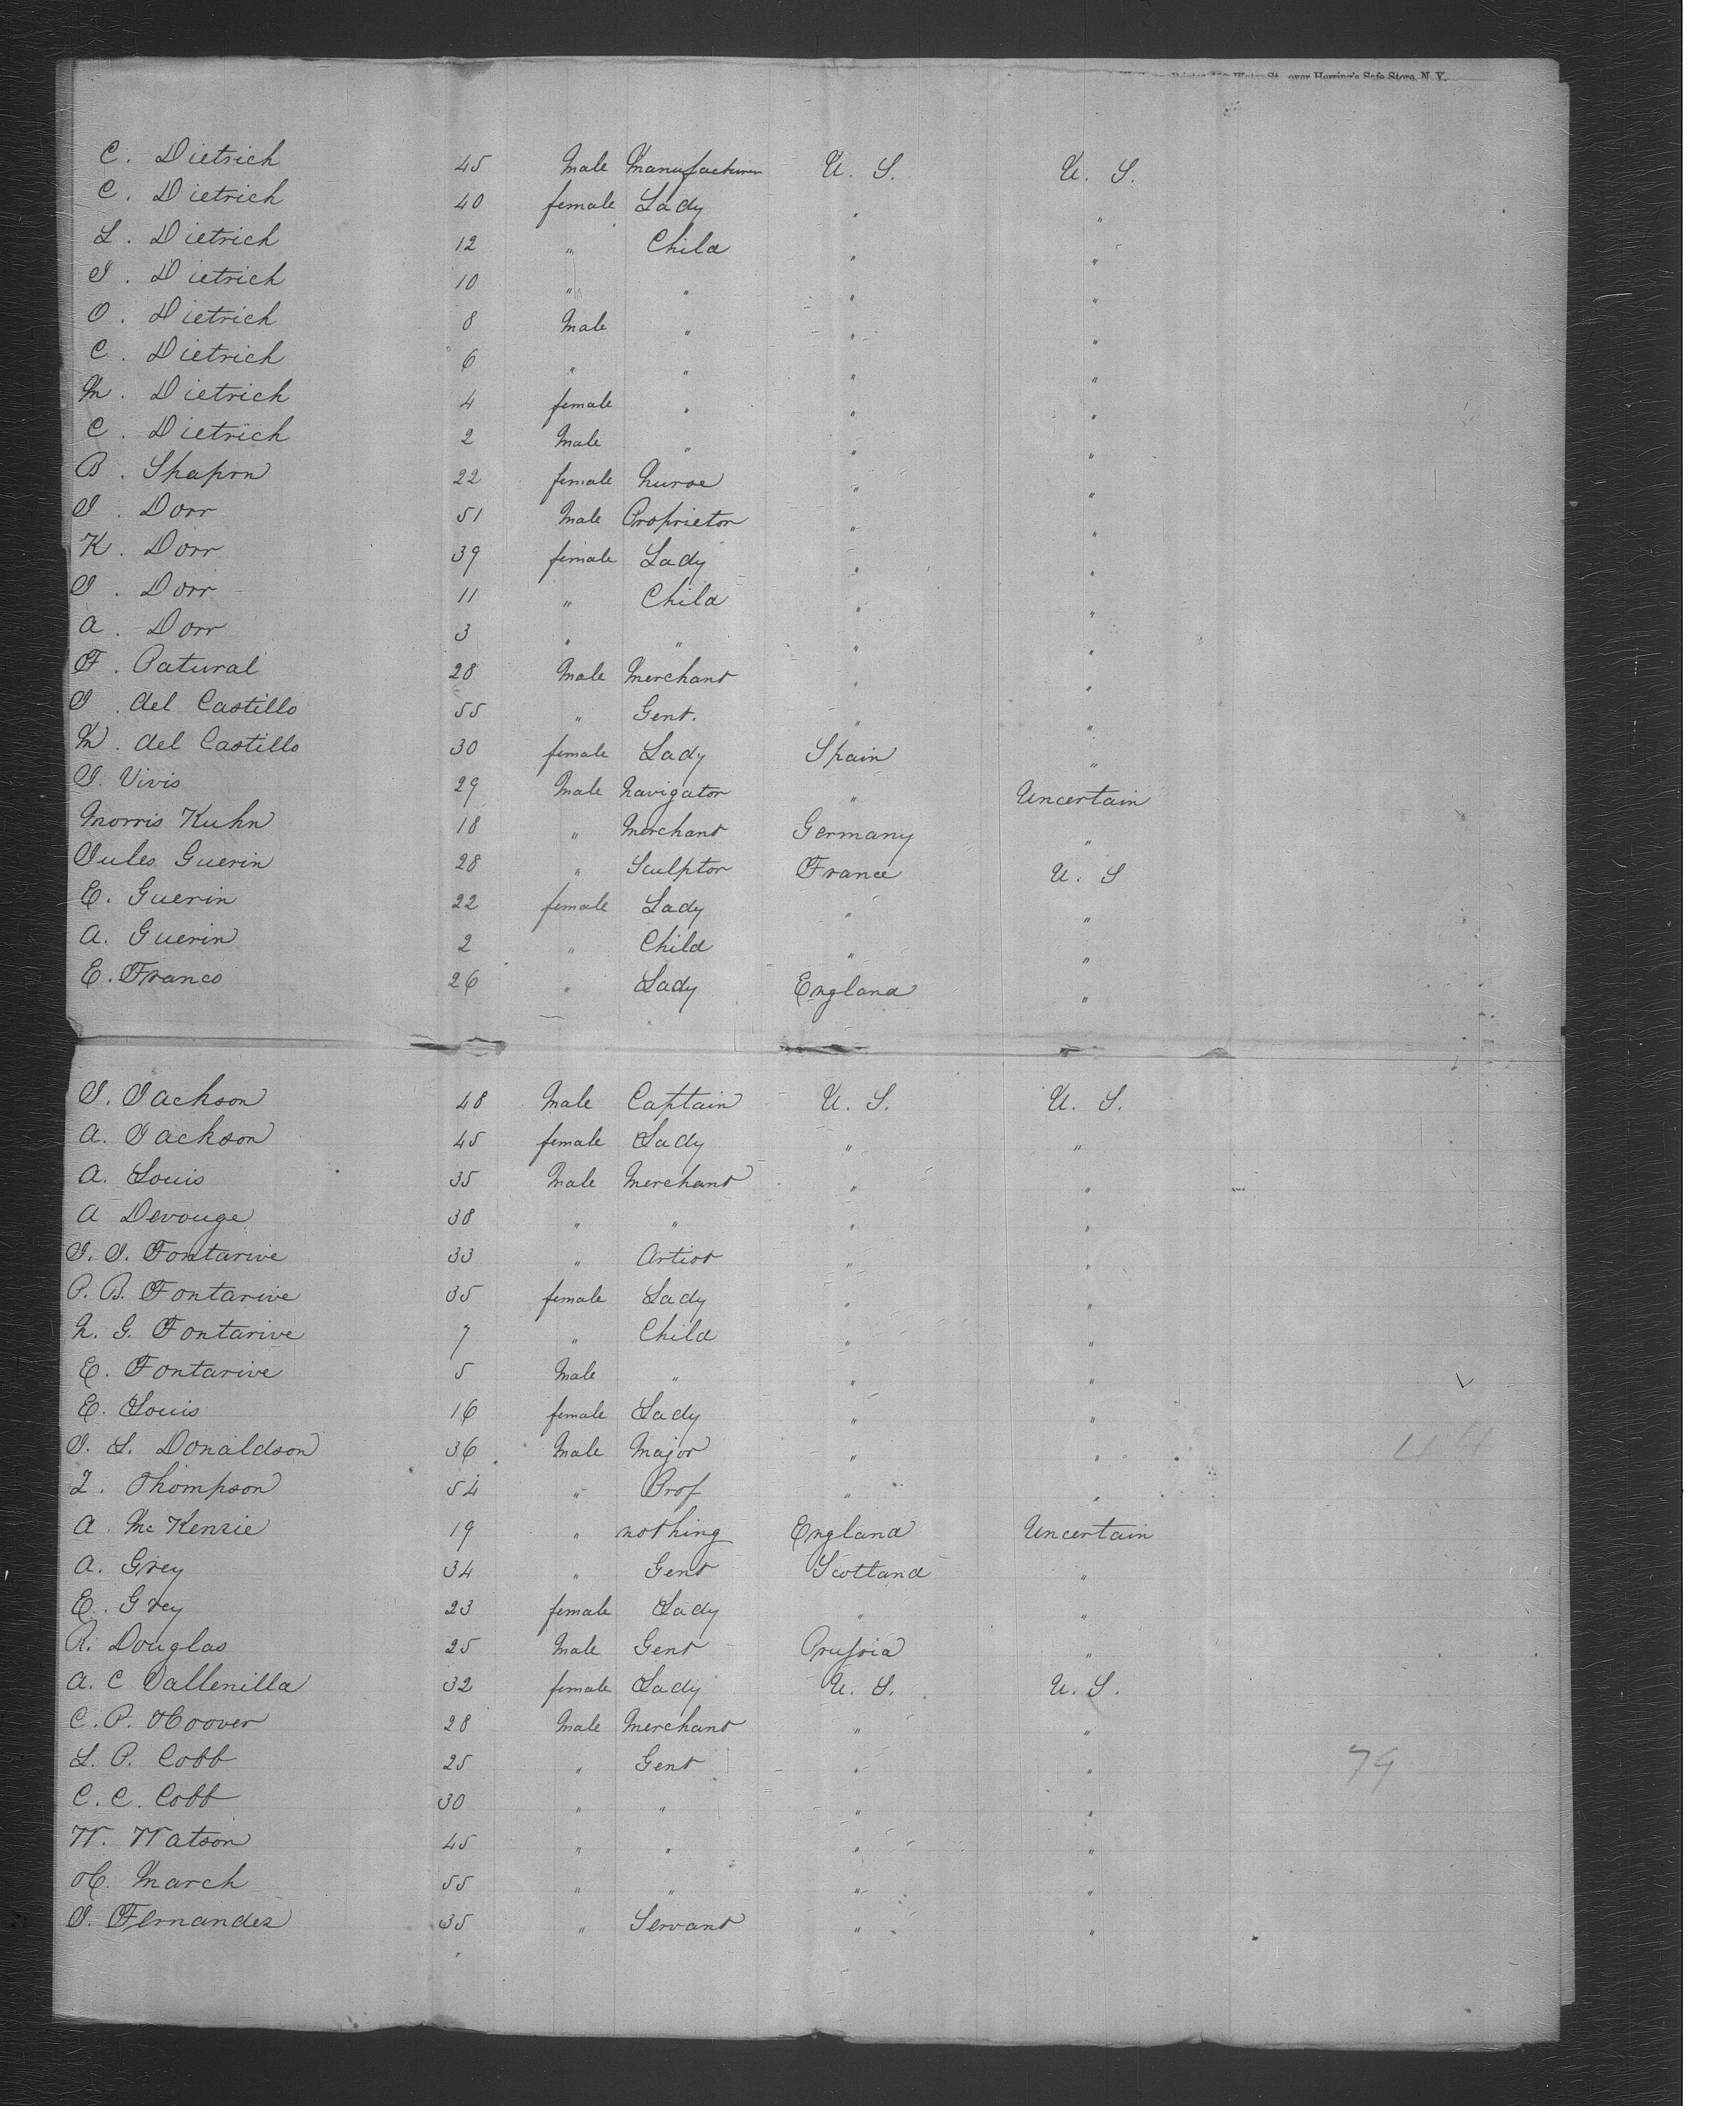 Water St. over Herring's Safe Store, N. Y.
C. Dietrich 45 Male Manufacturer U. S. U. S.
C. Dietrich 40 female Lady " "
L. Dietrich 12 " Child " "
J. Dietrich 10 " " " "
O. Dietrich 8 Male " " "
C. Dietrich 6 " " " "
M. Dietrich 4 female " " "
C. Dietrich 2 Male " " "
B. Shaprn 22 female Nurse " "
J. Dorr 51 Male Proprietor " "
K. Dorr 39 female Lady " "
J. Dorr 11 " Child " "
A. Dorr 3 " " " "
F. Patural 28 Male Merchant " "
J. del Castillo 55 " Gent. " "
M. del Castillo 30 female Lady Spain "
J. Vivis 29 Male Navigator " Uncertain
Morris Kuhn 18 " Merchant Germany "
Jules Guerin 28 " Sculptor France U. S
E. Guerin 22 female Lady " "
A. Guerin 2 " Child " "
E. Franco 26 " Lady England "
J. Jackson 48 Male Captain U. S. U. S.
A. Jackson 45 female Lady " "
A. Louis 35 Male Merchant " "
A Devouge 38 " " " "
J. J. Fontarive 33 " Artist " "
P. B. Fontarive 35 female Lady " "
N. G. Fontarive 7 " Child " "
E. Fontarive 5 Male " " "
E. Louis 16 female Lady " "
J. L. Donaldson 36 Male Major " "
Z. Thompson 54 " Prof " "
A. McKenzie 19 " nothing England Uncertain
A. Grey 34 " Gent Scotland "
E. Grey 23 female Lady " "
R. Douglas 25 Male Gent Prussia "
A. C Vallenilla 32 female Lady U. S. U. S.
C. P. Hoover 28 Male Merchant " "
L. P. Cobb 25 " Gent " " 79
C. C. Cobb 30 " " " "
W. Watson 45 " " " "
H. March 55 " " " "
J. Fernandez 35 " Servant " "